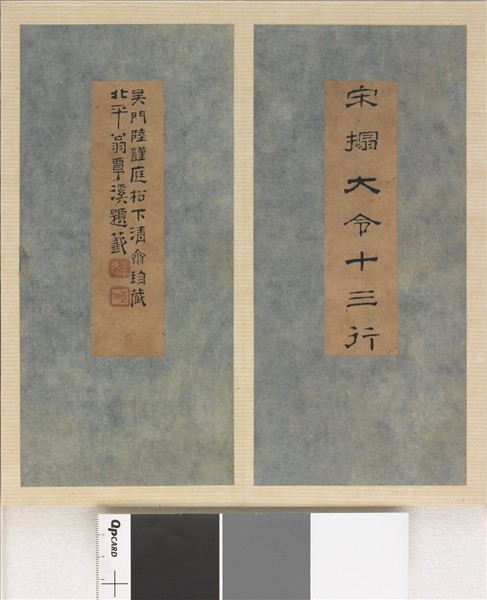 宋搨大令十三行
吴門陸謹庭松下清齋珍藏
北平翁覃溪題籤
QPCARD